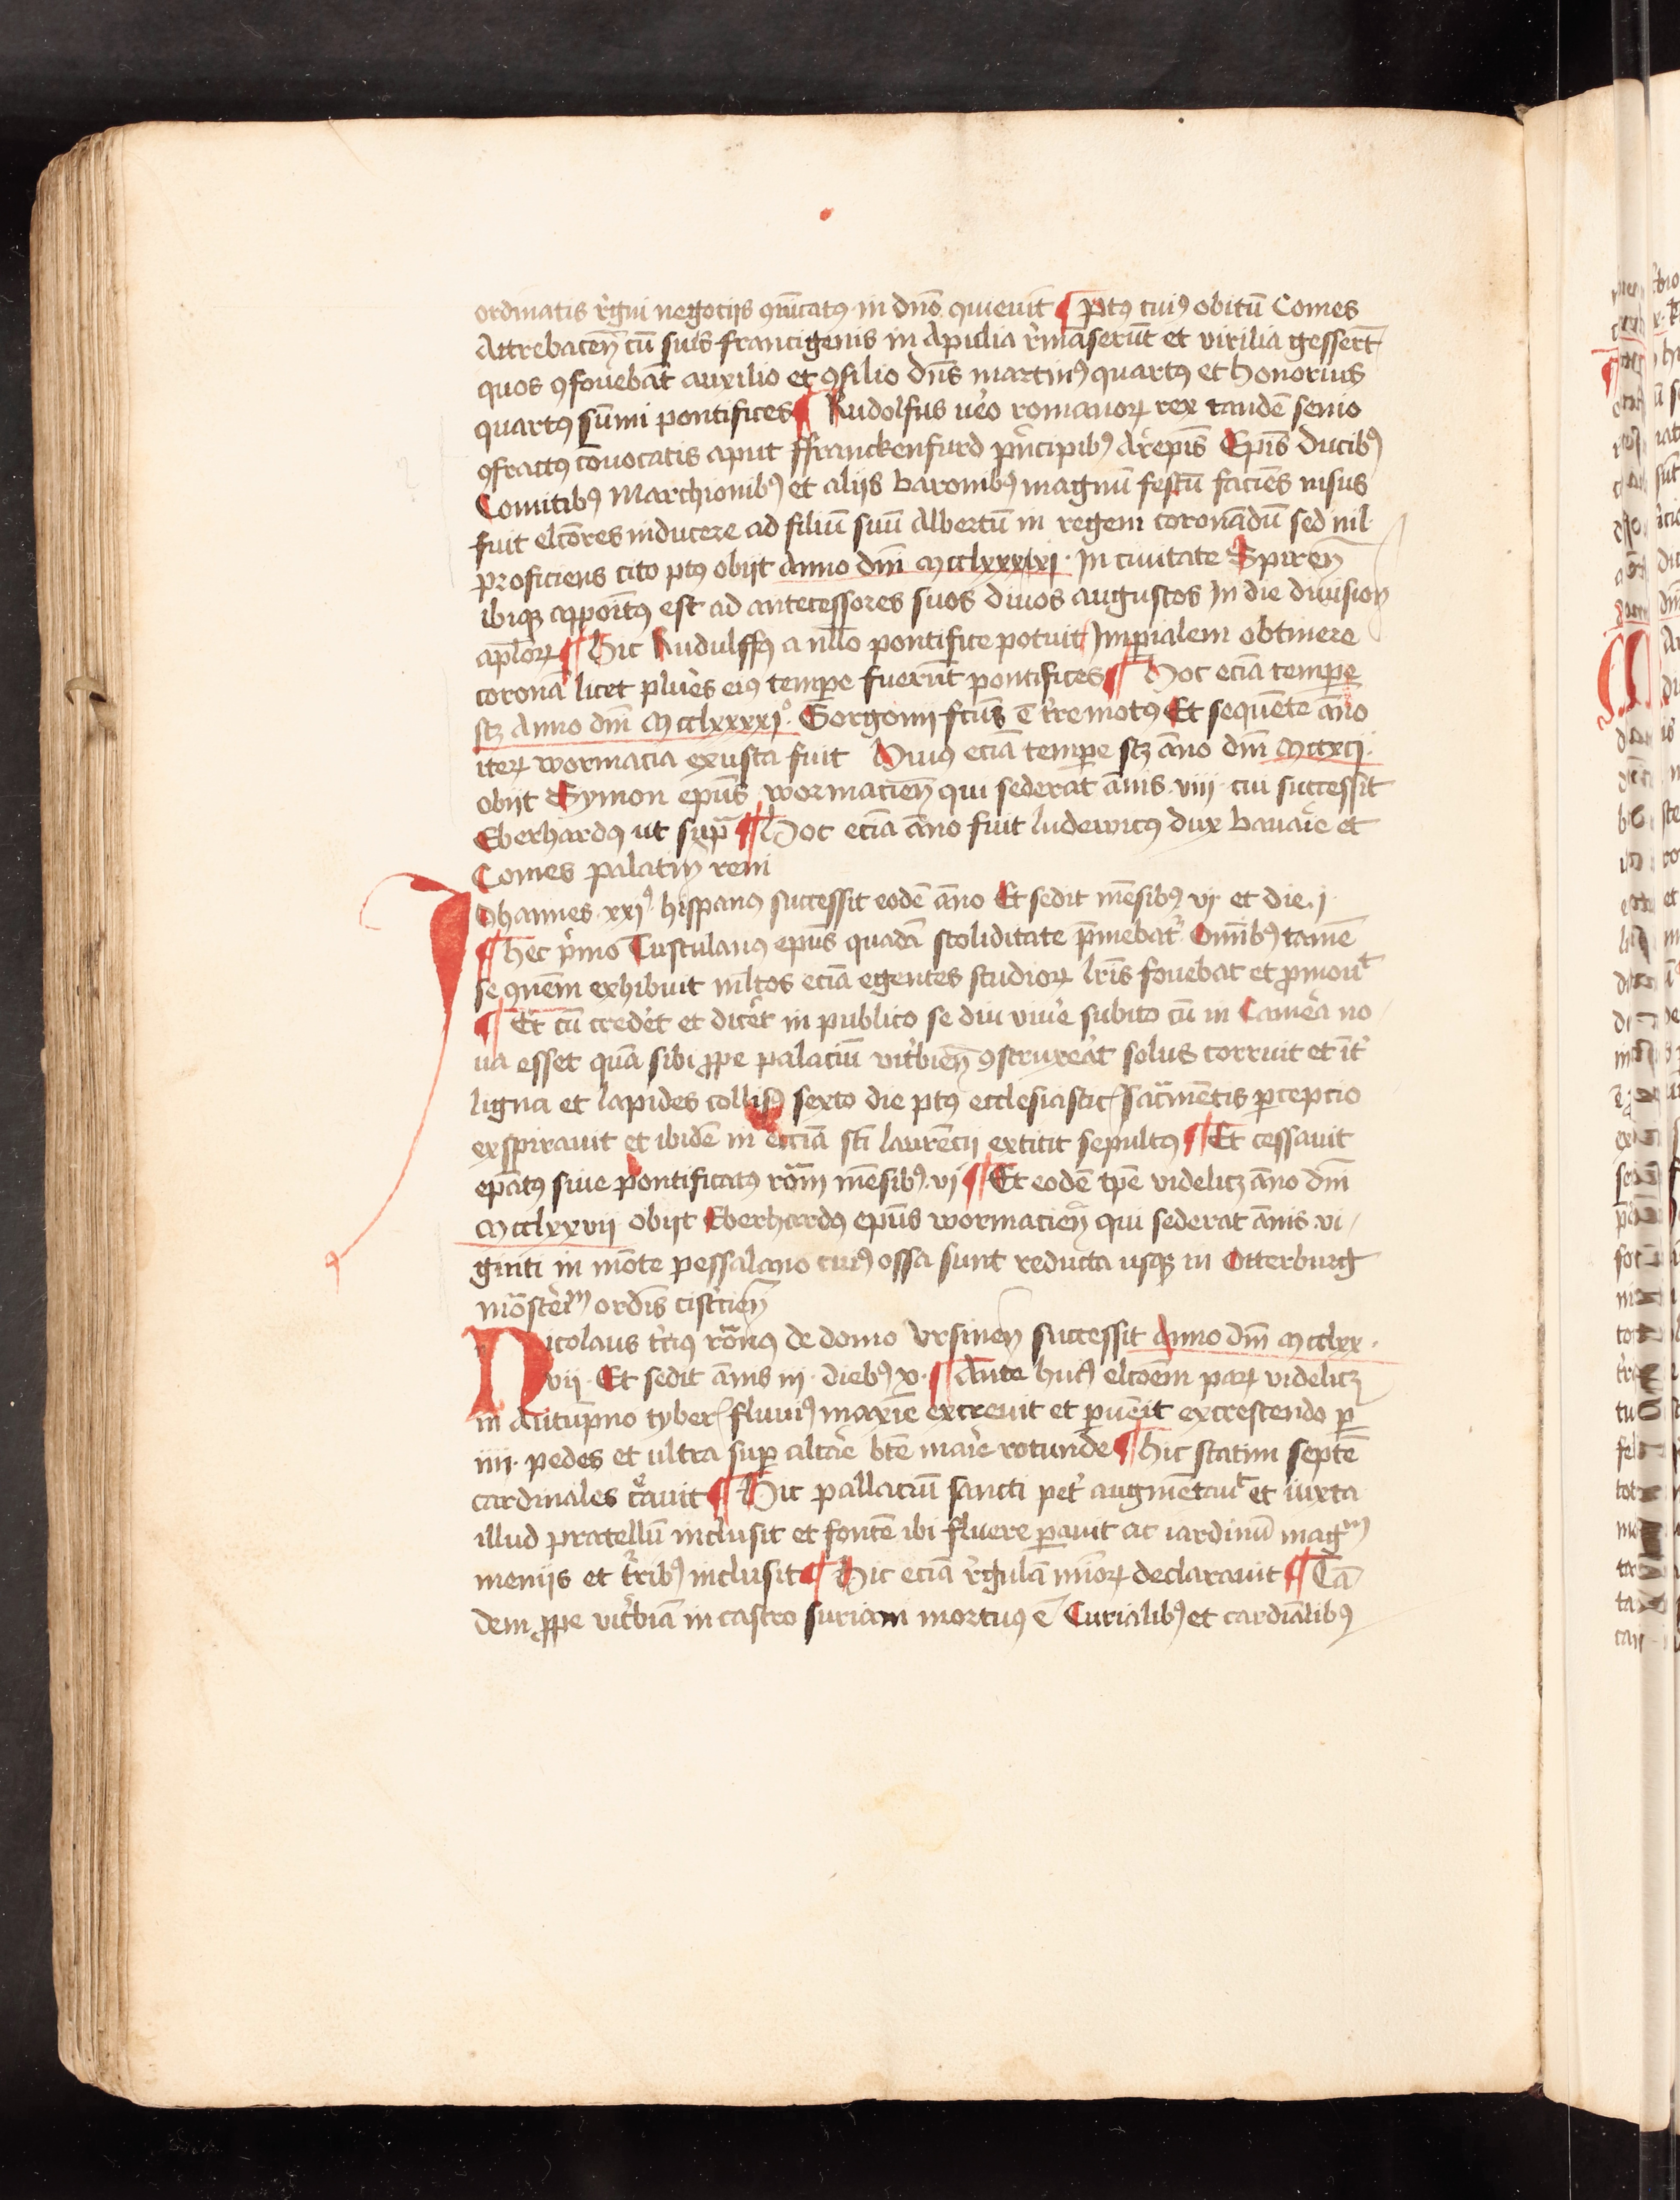 ordinatis r̉gni negocijs ꝯmu̅icatꝰ in dn̅o quieuit ¶ p̲tꝰ cuiꝰ obitu̅ Comes
Attrebacen̅ cu̅ suis francigenis in Apulia r̉ma̅seru̅t et virilia gesser̅t
quos ꝯfoueba̅t auxilio et ꝯsilio dn̅s martinꝰ quartꝰ et honorius
quartꝰ su̅mi pontifices ¶ Rudolfus ủo romanoꝝ rex tande̅ senio
ꝯfractꝰ co̅uocatis aput ffranckenfurd pn̉cipibꝰ Ar̉epis̅ Epis̅ ducibꝰ
Comitibꝰ Marchionibꝰ et alijs baronibꝰ magnu̅ festu̅ facie̅s nisus
fuit elco̅res inducere ad filiu̅ suu̅ Albertu̅ in regem corona̅du̅ sed nil
proficiens cito ptꝰ obijt Anno dm̅ Mcclxxxlxj · In ciuitate Spiren̅
ibiqꝫ appoit̅ꝰ est ad antecessores suos diuos augustos In die diuision̅
apl̅oꝝ ¶ Hic Rudulffꝰ a nll̅o pontifice potuit Imp̲ialem obtinere
corona̅ licet plur̉es eiꝰ temp̲e fueru̅t pontifices ¶ Hoc ecia̅ temp̲e
scꝫ Anno dm̅ Mcclxxxxjº · Gorgonij fcu̅s e̅ tr̉emotꝰ Et seque̅te a̅no
iteꝝ wormacia exusta fuit Huiꝰ ecia̅ temp̲e scꝫ a̅no dm̅ Mccxcij ·
obijt Symon epu̅s wormacien̅ qui sedera̅t a̅nis · viij · cui successit
Eberhardꝰ ut sup̅a ¶ Hoc ecia̅ a̅no fuit ludewicꝰ dux bauar̉e et
Comes palatin̅ reni
Johannes · xxjꝰ · hispanꝰ successit eode̅ a̅no Et sedit me̅sibꝰ vj · et die · j ·
¶ hec pr̉mo Tusculanꝰ epu̅s quada̅ stoliditate p̅mebat̉ Omi̅bꝰ tame̅
se ꝯmu̅em exhibuit ml̅tos ecia̅ egentes studioꝝ lr̅is fouebat et ꝓmouᵗ
¶ Et cu̅ cred̉et et dic̉et in publico se diu viủe subito cu̅ in Cam̉a no
ua esset qua̅ sibi ꝓpe palaciu̅ vit̉bien̅ ꝯstruxẻat solus corruit et int̉
ligna et lapides collisꝰ sexto die ptꝰ ecclesiastic̅ sac̅me̅tis p̲cepcio
exspirauit et ibide̅ in ecc̅ia̅ sti̅ laure̅cij extitit sepultꝰ ¶ Et cessauit
epa̅tꝰ siue pontificatꝰ ro̅m̅ me̅sibꝰ · vj ¶ Et eode̅ tp̅e videlicꝫ a̅no dm̅
Mcclxxvij obijt Eberhardꝰ epu̅s wormacien̅ qui sederat a̅nis vi
ginti in mo̅te pessalano cuiꝰ ossa sunt reducta usqꝫ in Otterburg
mo̅ster̉iᵐ ordi̅s cist̉cien̅
Nicolaus tr̉ciꝰ ro̅nꝰ de domo Vrsinen̅ successit Anno dm̅ Mcclxx ·
vij · Et sedit a̅nis iij · diebꝰ xv · ¶ Ante huiꝰ elco̅em paꝝ videlicꝫ
in Autu̅pno tyber̅ fluuiꝰ maxi̅e excreuit et p̲uenit̅ excrescendo p̲
iiij · pedes et ultra sup̲ altar̉e bte̅ mar̉ie rotunde ¶ Hic statim septe̅
cardinales cr̉auit ¶ Hic pallaciu̅ sancti pet̉ augme̅tauᵗ et iuxta
illud pratellu̅ inclusit et fonte̅ ibi fluere p̲auit ac iardinu̅ magᵐ
menijs et t̉ribꝰ inclusit ¶ Hic ecia̅ r̉gula̅ mi̅oꝝ declarauit ¶ Ta̅
dem ꝓpe vit̉bia̅ in castro suriam mortuꝰ e̅ Curialibꝰ et cardia̅libꝰ